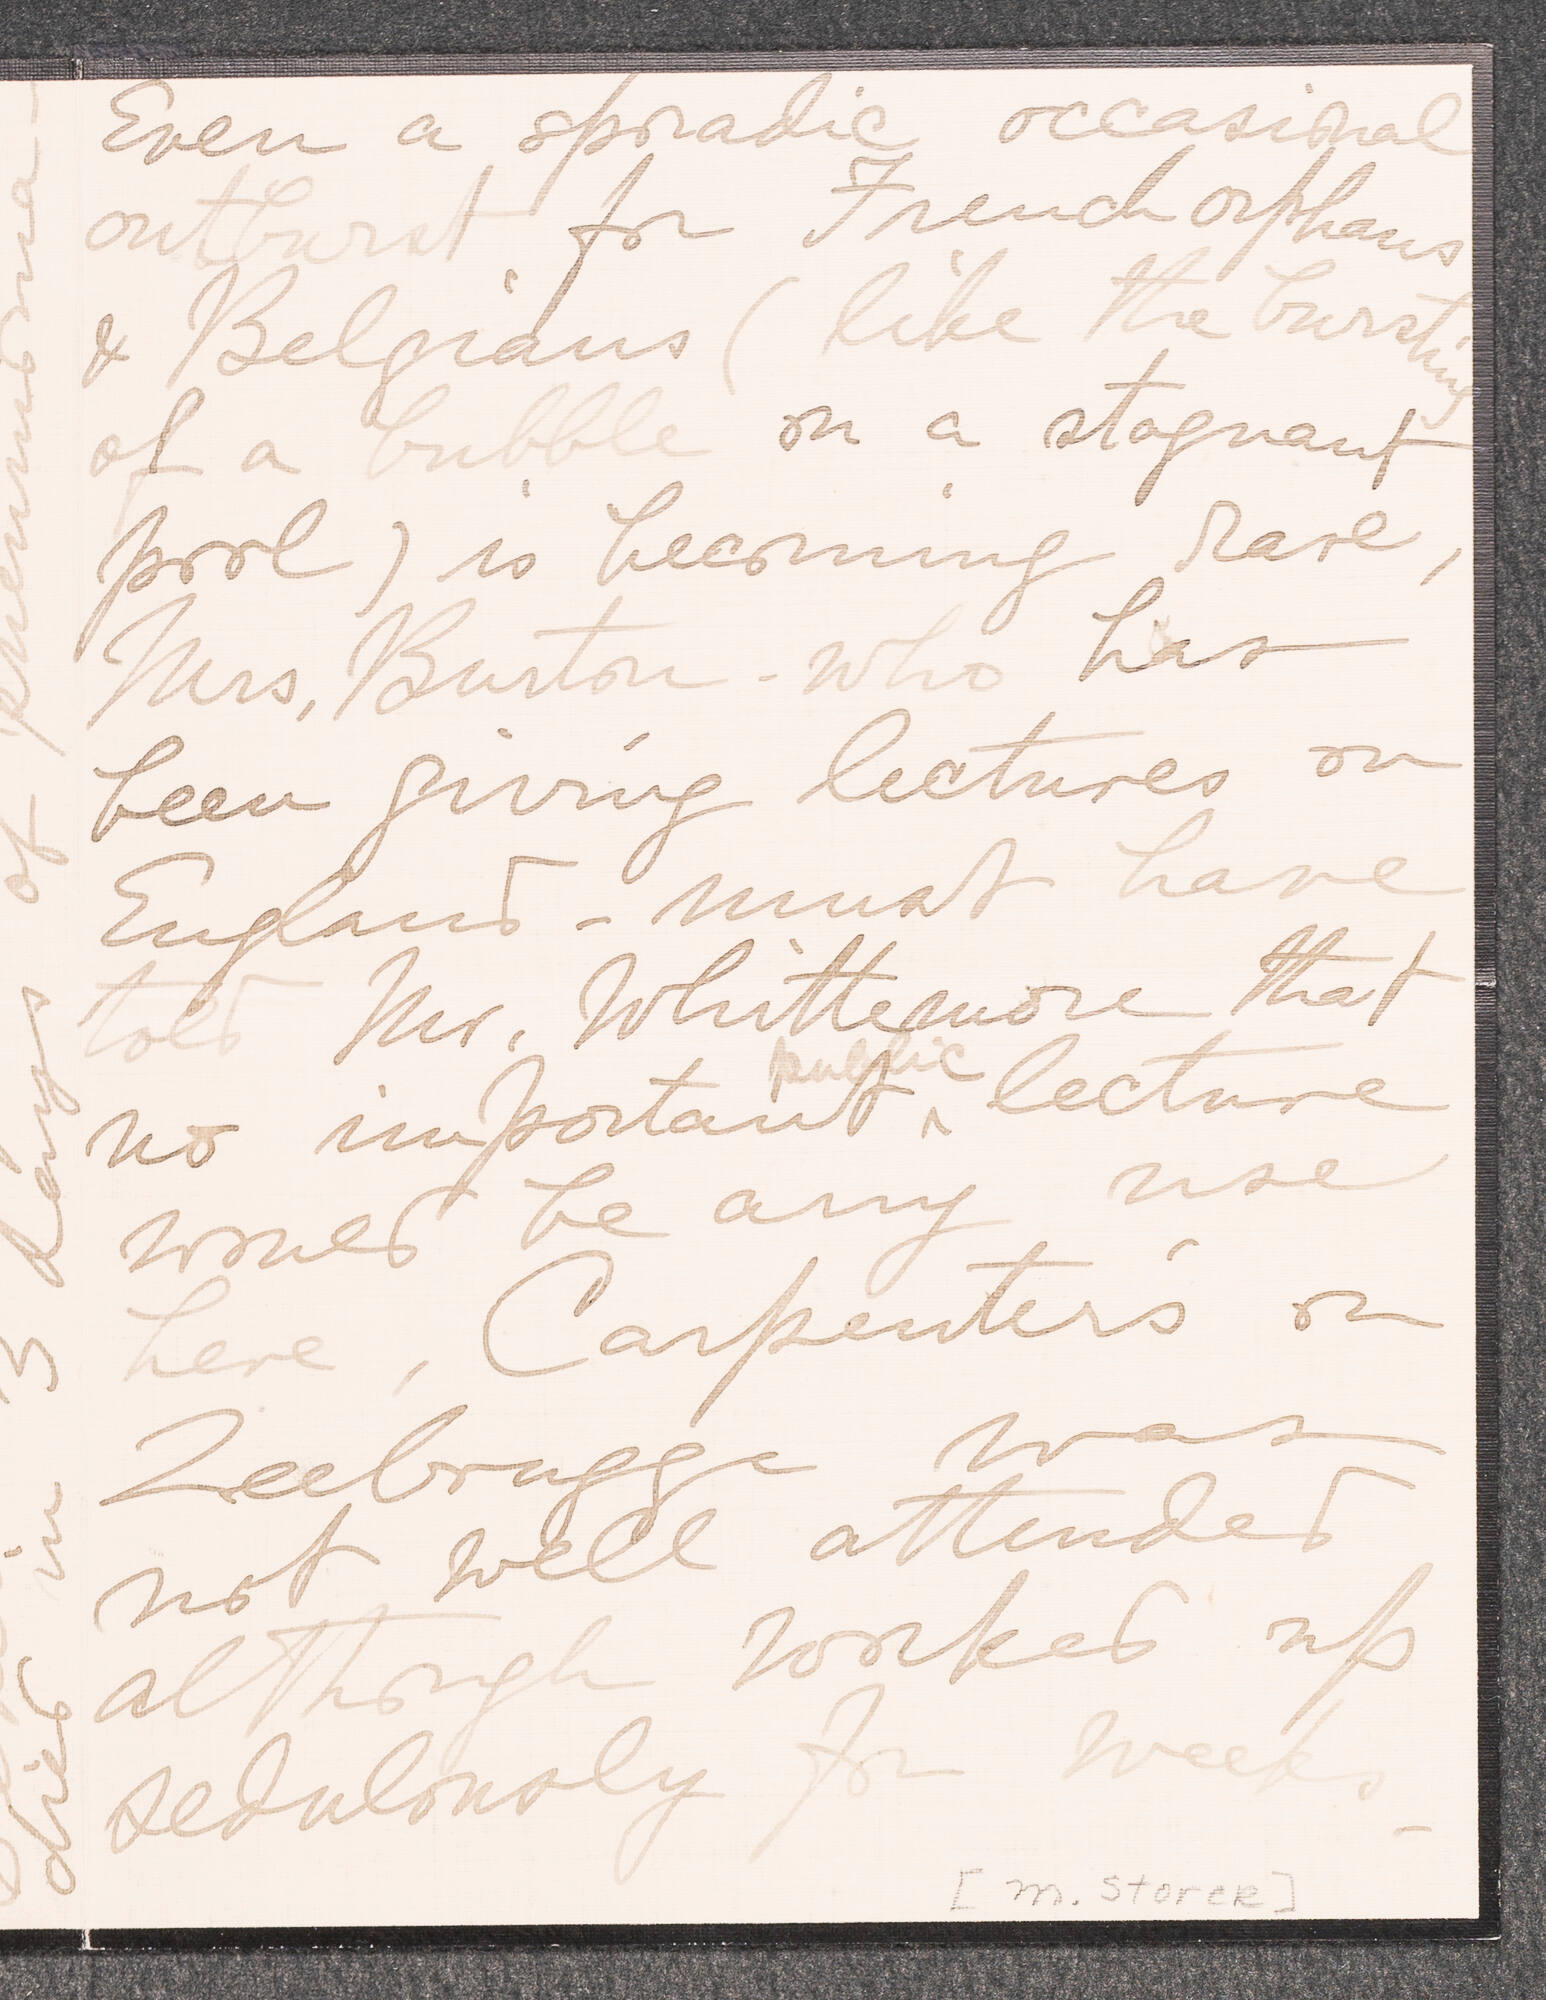 Even a sporadic occasional
outburst for French orphans
& Belgians (like the bursting
of a bubble on a stagnant
pool) is becoming rare,
Mrs. Burton - who has
been giving lectures on
England - must have
told Mr. Whittemore that
no important public lecture
would be any use
here, Carpenter's on
Zeebrugge was
not well attended
although worked up
sedulously for weeks -
[M. Storer]
died in 3 days of pneumonia -